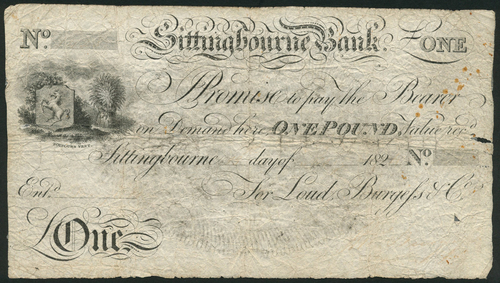 No. Sittingbourne Bank. £ONE
I Promise to pay the Bearer
on Demand here ONE POUND, Value rec.d
Sittingbourne day of 182 No.
Ent.d For Loud, Burgess & Co.
£One.